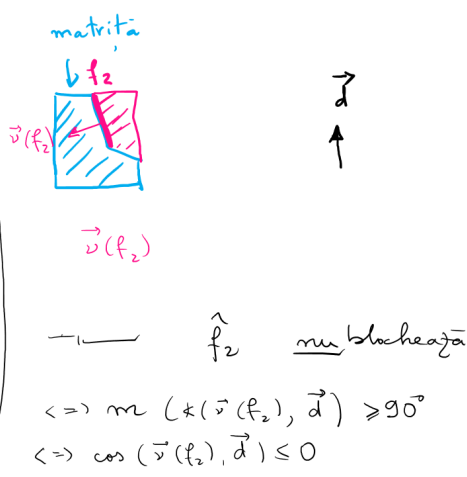 matriță
f₂
d⃗
ν⃗(f₂)
ν⃗(f₂)
—"— f̂₂ nu blochează
<=> m (∢(ν⃗(f₂), d⃗) ⩾ 90°
<=> cos (ν⃗(f₂), d⃗) ≤ 0